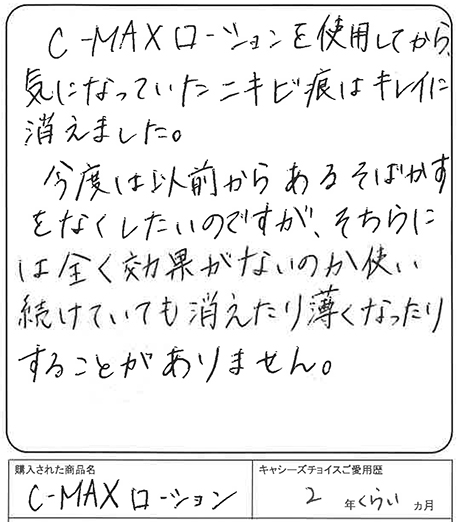 C-MAXローションを使用してから、
気になっていたニキビ痕はキレイに
消えました。
今度は以前からあるそばかす
をなくしたいのですが、そちらに
は全く効果がないのか使い
続けていても消えたり薄くなったり
することがありません。
購入された商品名
C-MAXローション
キャシーズチョイスご愛用歴
2 年くらい ヵ月